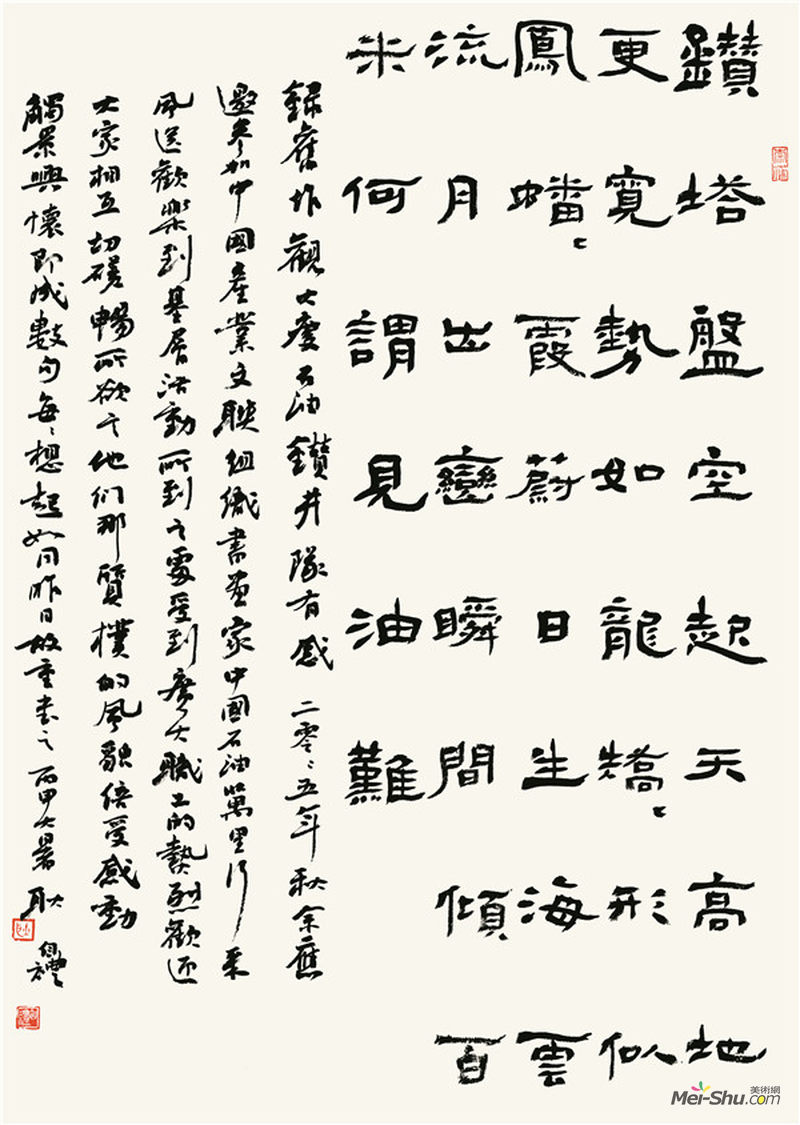 鑽塔盤空起天高地
更寬勢如龍矯〻形似
鳳蟠〻霞蔚日生海雲
流月出巒瞬間傾百
米何謂見油難
錄舊作觀大慶石油鑽井隊有感二零〻五年秋余應
邀參加中國產業文聯組織書畫家中國石油萬里行采
風送歡樂到基層活動所到之處受到廣大職工的熱烈歡迎
大家相互切磋暢所欲言他们那質樸的風貌倍受感動
觸景興懷即成數句每〻想起如同昨日故重書之丙申大暑耿
美術網
Mei-Shu.com